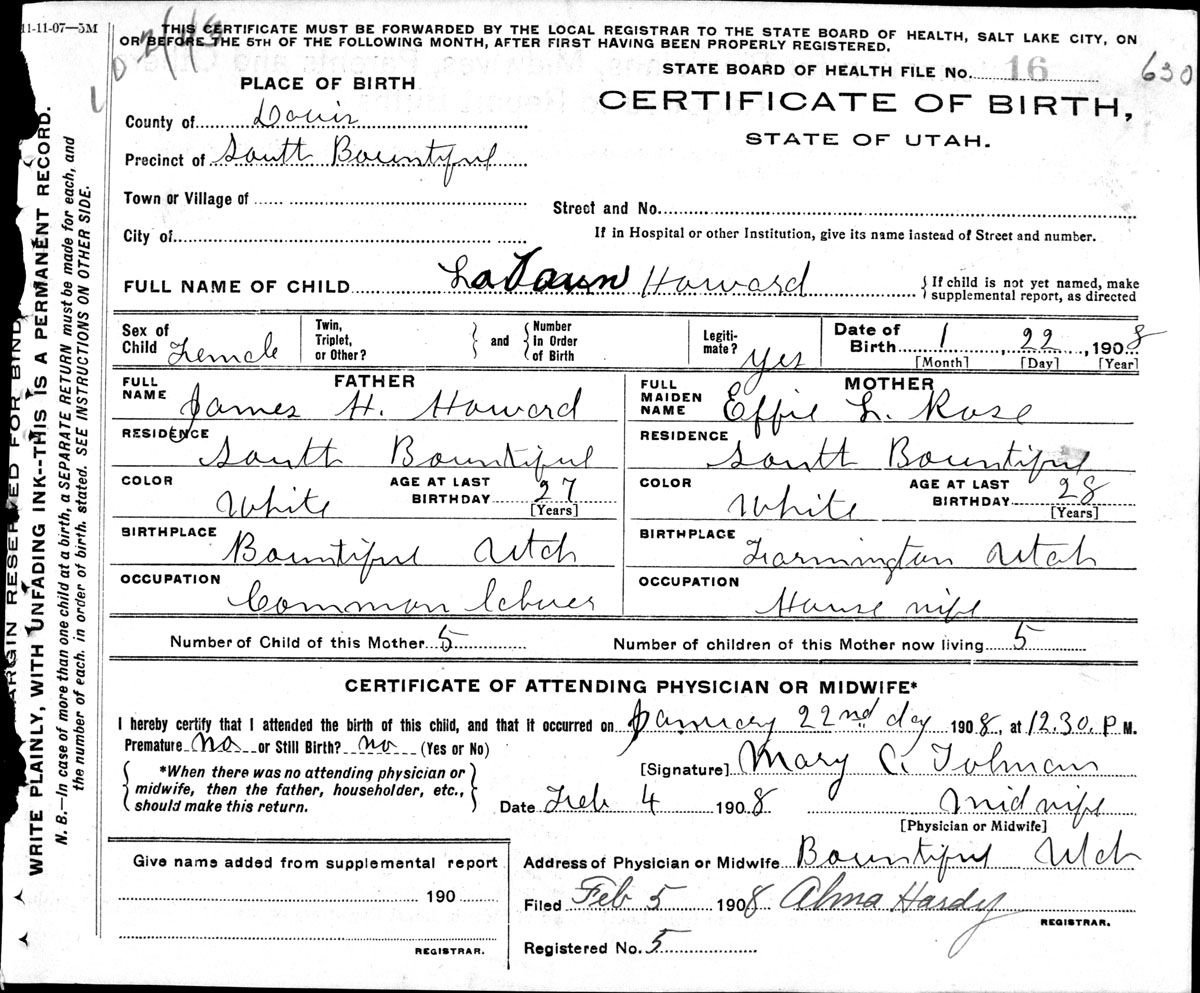 11-11-07—5M
THIS CERTIFICATE MUST BE FORWARDED BY THE LOCAL REGISTRAR TO THE STATE BOARD OF HEALTH, SALT LAKE CITY, ON
OR BEFORE THE 5TH OF THE FOLLOWING MONTH, AFTER FIRST HAVING BEEN PROPERLY REGISTERED.
STATE BOARD OF HEALTH FILE No. 16 630
PLACE OF BIRTH
CERTIFICATE OF BIRTH,
STATE OF UTAH.
County of Davis
Precinct of South Bountiful
Town or Village of
Street and No.
City of
If in Hospital or other Institution, give its name instead of Street and number.
FULL NAME OF CHILD Howard
If child is not yet named, make
supplemental report, as directed
Sex of Child Female
Twin, Triplet, or Other?
and
Number In Order of Birth
Legiti-mate? Yes
Date of Birth 1, 22, 1908
[Month] [Day] [Year]
FATHER
FULL NAME James H. Howard
RESIDENCE South Bountiful
COLOR White
AGE AT LAST BIRTHDAY 27
[Years]
BIRTHPLACE Bountiful Utah
OCCUPATION Common laborer
MOTHER
FULL MAIDEN NAME Effie L. Rose
RESIDENCE South Bountiful
COLOR White
AGE AT LAST BIRTHDAY 28
[Years]
BIRTHPLACE Farmington Utah
OCCUPATION House wife
Number of Child of this Mother 5
Number of children of this Mother now living 5
CERTIFICATE OF ATTENDING PHYSICIAN OR MIDWIFE*
I hereby certify that I attended the birth of this child, and that it occurred on January 22nd day 1908, at 12.30. P M.
Premature no or Still Birth? no (Yes or No)
*When there was no attending physician or
midwife, then the father, householder, etc.,
should make this return.
[Signature] Mary C. Tolman
Date Feb 4 1908 midwife
[Physician or Midwife]
Give name added from supplemental report
190
REGISTRAR.
Address of Physician or Midwife Bountiful Utah
Filed Feb 5 1908 Alma Hardy
REGISTRAR.
Registered No. 5
MARGIN RESERVED FOR BIND
WRITE PLAINLY, WITH UNFADING INK--THIS IS A PERMANENT RECORD.
N. B.—In case of more than one child at a birth, a SEPARATE RETURN must be made for each, and
the number of each, in order of birth, stated. SEE INSTRUCTIONS ON OTHER SIDE.